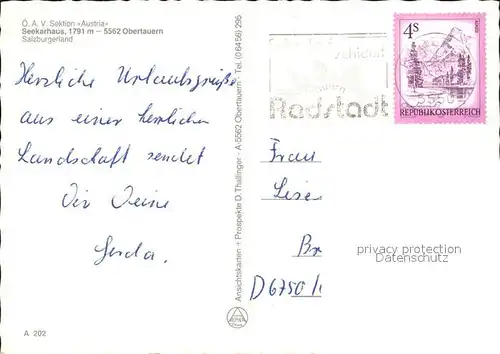 Ö. A. V. Sektion »Austria«
Seekarhaus, 1791 m — 5562 Obertauern
Salzburgerland
Herzliche Urlaubsgrüße
aus einer herrlichen
Landschaft sendet
Dir Deine
Gerda.
A 202
Ansichtskarten + Prospekte D. Thallinger - A-5562 Obertauern - Tel. (0 64 56) 295
Radstadt
4S
REPUBLIK ÖSTERREICH
Frau
Lise
Br
D 6750 /1
privacy protection
Datenschutz